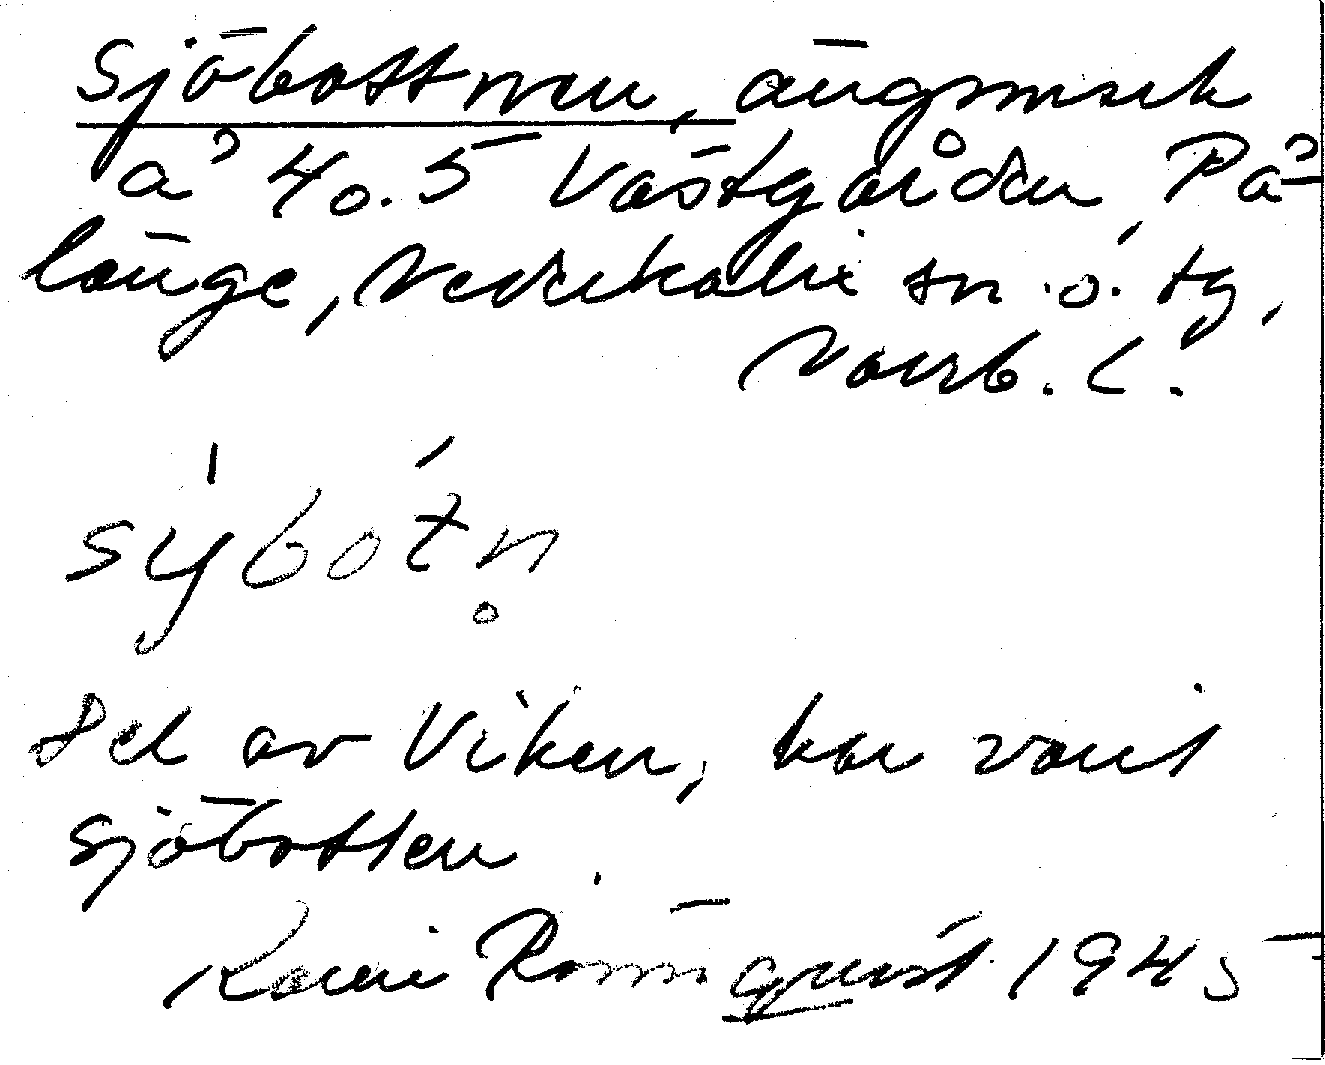 Sjöbottnen, ängsmark
å 40.5 Västgården, På-
länge, Nederkalix sn. o. tg,
Norrb. L.
sy̍bótn̥
Del av Viken, har varit
sjöbotten.
Karin Rönnquist 1945